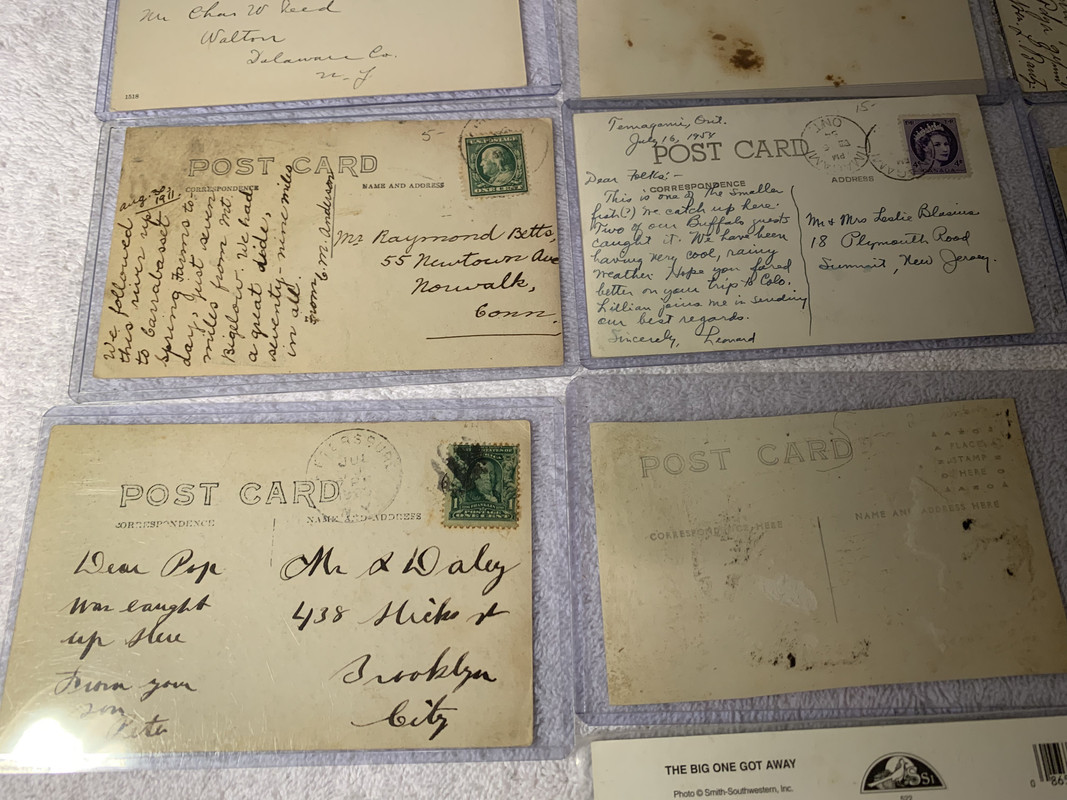 Mr Chas W Reed
Walton
Delaware Co.
N-Y
1518
5-
POST CARD
CORRESPONDENCE
NAME AND ADDRESS
Aug. 26
1911
We followed
this river up
to Carrabasset
Spring Farms to-
day, just seven
miles from Mt
Bigelow. We had
a great ride,
seventy-nine miles
in all
From C.M. Anderson
Mr Raymond Betts,
55 Newtown Ave
Norwalk,
Conn.
15-
Temagami, Ont.
July 16, 1954
POST CARD
CORRESPONDENCE
ADDRESS
CANADA
Dear Folks:-
This is one of the smaller
fish(?) we catch up here.
Two of our Buffalo guests
caught it. We have been
having very cool, rainy
weather. Hope you fared
better on your trip to Colo.
Lillian joins me in sending
our best regards.
Sincerely, Leonard
Mr & Mrs Leslie Blasius
18 Plymouth Road
Summit, New Jersey.
POST CARD
CORRESPONDENCE
NAME AND ADDRESS
JUL
Dear Pop
Was caught
up Here
From your
son
Pete
Mr & Daley
438 Hicks st
Brooklyn
City
POST CARD
CORRESPONDENCE HERE
NAME AND ADDRESS HERE
PLACE
STAMP
HERE
THE BIG ONE GOT AWAY
Photo © Smith-Southwestern, Inc.
SSI
0 86